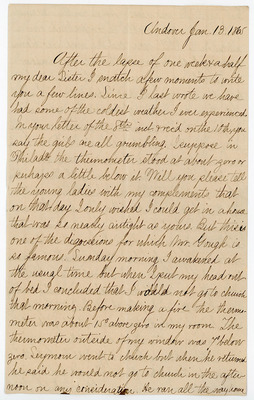 Andover Jan 13. 1865
After the lapse of one week & a half
my dear Sister I snatch a few moments to write
you a few lines. Since I last wrote we have
had some of the coldest weather I ever experienced.
In your letter of the 8th inst rec'd on the 10th you
say the girls are all grumbling. I suppose in
Philada the thermometer stood at about zero or
perhaps a little below it. Will you please tell
the young ladies with my complements that
on that day I only wished I could get in a house
that was so nearly airtight as yours. But this is
one of the digressions for which Mr. Gough is
so famous. Sunday morning I awakened at
the usual time but when I put my head out
of bed I concluded that I would not go to church
that morning. Before making a fire the thermo-
meter was about 15° above zero in my room. The
thermometer outside of my window was 7° below
zero. Seymour went to church but when he returned
he said he would not go to church in the after
noon on any consideration. He ran all the way home